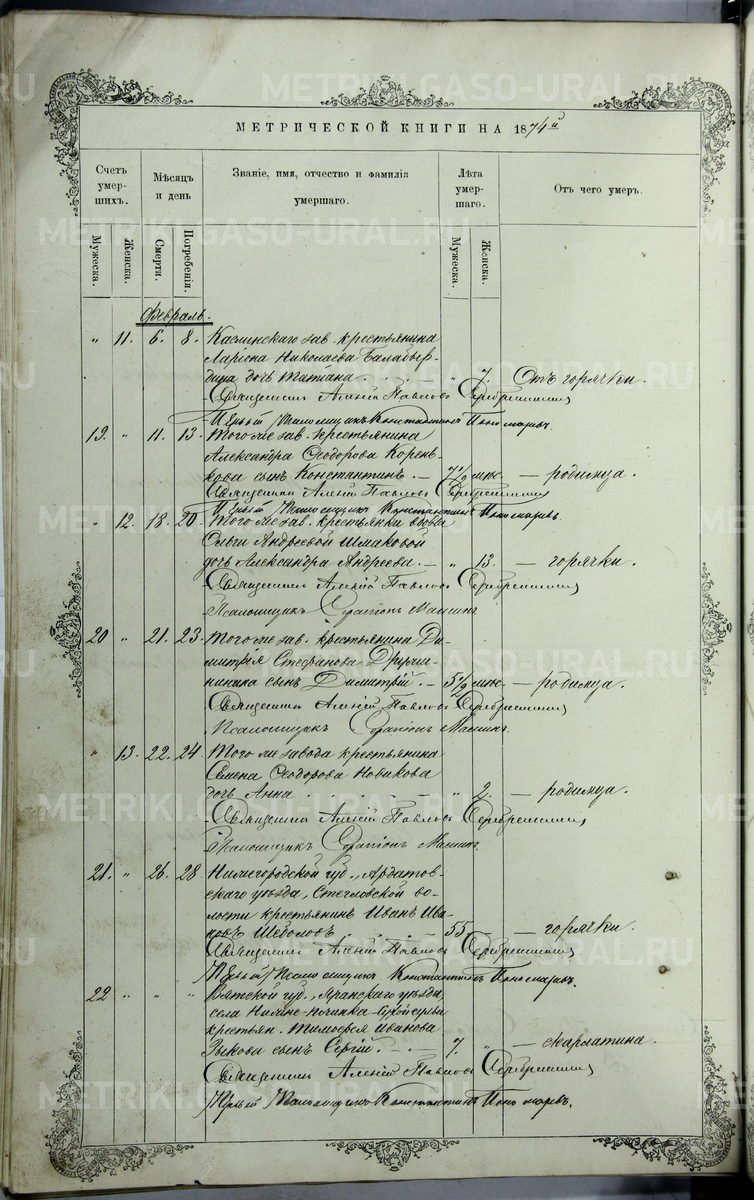 МЕТРИЧЕСКОЙ КНИГИ НА 1874й
Счетъ умер-шихъ. Мѣсяцъ и день Званіе, имя, отчество и фамилія умершаго. Лѣта умер-шаго. Отъ чего умеръ.
Мужеска. Женска. Смерти. Погребенія. Мужеска. Женска.
Февраль.
„ 11. 6. 8. Каслинскаго зав. крестьянина
Ларіона Николаева Балабер-
дина дочь Татіана „ 7. Отъ горячки.
Священникъ Алексій Павловъ Серебренниковъ
Псаломщикъ Константинъ Пономаревъ.
19. „ 11. 13. Того же зав. крестьянина
Александра Ѳеодорова Корень-
кова сынъ Константинъ. 7½ мѣс. — родимца.
Священникъ Алексій Павловъ Серебренниковъ
Псаломщикъ Константинъ Пономаревъ.
„ 12. 18. 20. Того же зав. крестьянки вдовы
Ольги Андреевой Шмаковой
дочь Александра Андреева. — „ 13. — горячки.
Священникъ Алексій Павловъ Серебренниковъ
Псаломщикъ Серапіонъ
20 „ 21. 23. Того же зав. крестьянина Ди-
митрія Стефанова Дружи-
нинина сынъ Димитрій. — 5½ мѣс. — родимца.
Священникъ Алексій Павловъ Серебренниковъ
Псаломщикъ Серапіонъ
„ 13. 22. 24. Того же завода крестьянина
Семена Ѳеодорова Новикова
дочь Анна „ 2. — родимца.
Священникъ Алексій Павловъ Серебренниковъ
Псаломщикъ Серапіонъ
21. „ 26. 28. Нижегородской губ., Ардатов-
скаго уѣзда, волости крестьянинъ Иванъ Ива-
новъ 55. — горячки.
Священникъ Алексій Павловъ Серебренниковъ
Псаломщикъ Константинъ Пономаревъ.
22 „ „ „ Вятской губ., Яранскаго уѣзда,
села
крестьян. Тимофея Иванова
Зыкова сынъ Сергій. — 7. „ — скарлатина.
Священникъ Алексій Павловъ Серебренниковъ
Псаломщикъ Константинъ Пономаревъ.
METRIKI.GASO-URAL.RU